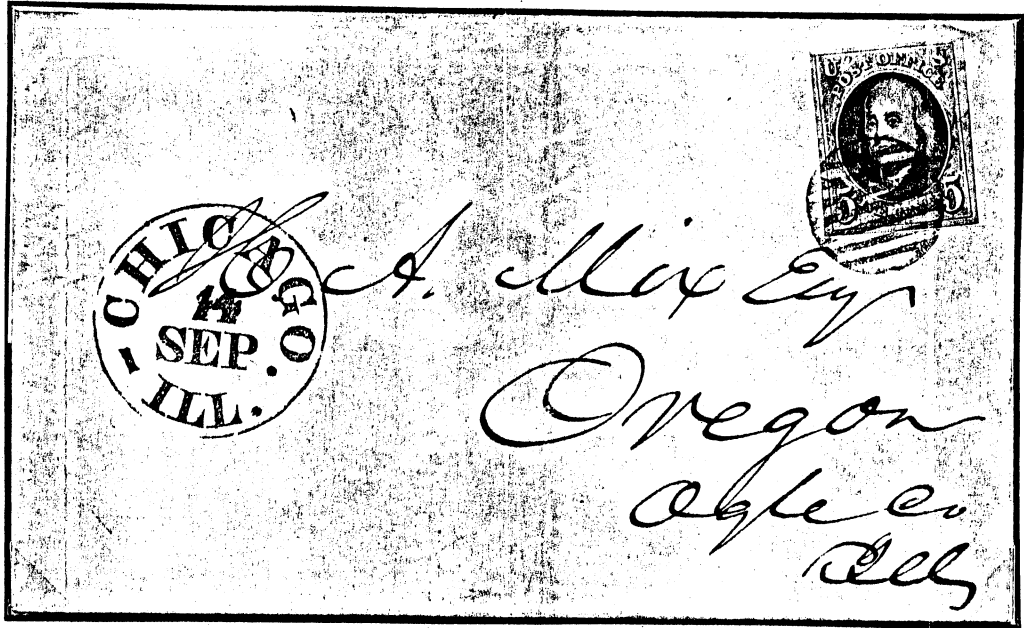 POST OFFICE
CHICAGO
14
SEP.
ILL.
A. Mix Esq
Oregon
Ogle Co
Ills